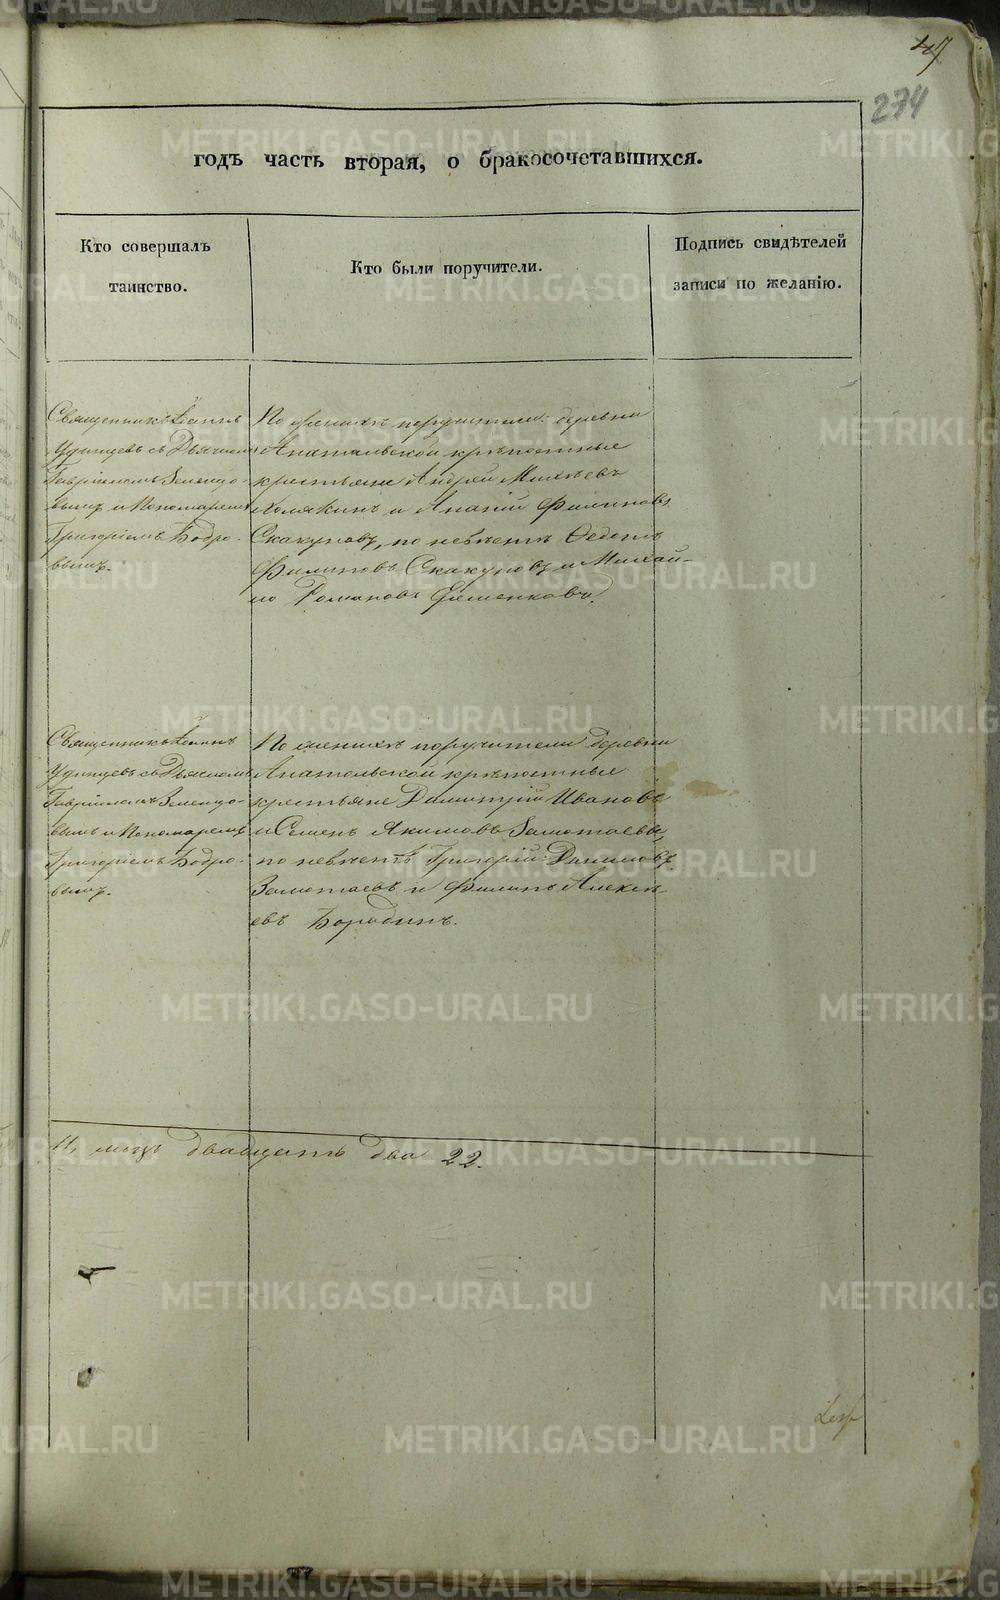 47
274
годъ часть вторая, о бракосочетавшихся.
Кто совершалъ
таинство.
Кто были поручители.
Подпись свидѣтелей
записи по желанію.
Священникъ Іоаннъ
Удинцевъ съ Дьячкомъ
Гавріиломъ Зеленцо-
вымъ и Пономаремъ
Григоріемъ Бодро-
вымъ.
По женихѣ поручители: деревни
Анатольской крѣпостные
крестьяне Андрей Михѣевъ
Холякинъ и Ананій Филиповъ
Скакуновъ, по невѣстѣ Ѳедотъ
Филиповъ Скакуновъ и Михай-
ло Романовъ
Священникъ Іоаннъ
Удинцевъ съ Дьячкомъ
Гавріиломъ Зеленцо-
вымъ и Пономаремъ
Григоріемъ Бодро-
вымъ.
По женихѣ поручители деревни
Анатольской крѣпостные
крестьяне Димитрій Ивановъ
и Семенъ Якимовъ Замотаевы,
по невѣстѣ Григорій Даниловъ
Замотаевъ и Филипъ Алексѣ-
евъ Бородинъ.
двадцать два 22.
METRIKI.GASO-URAL.RU